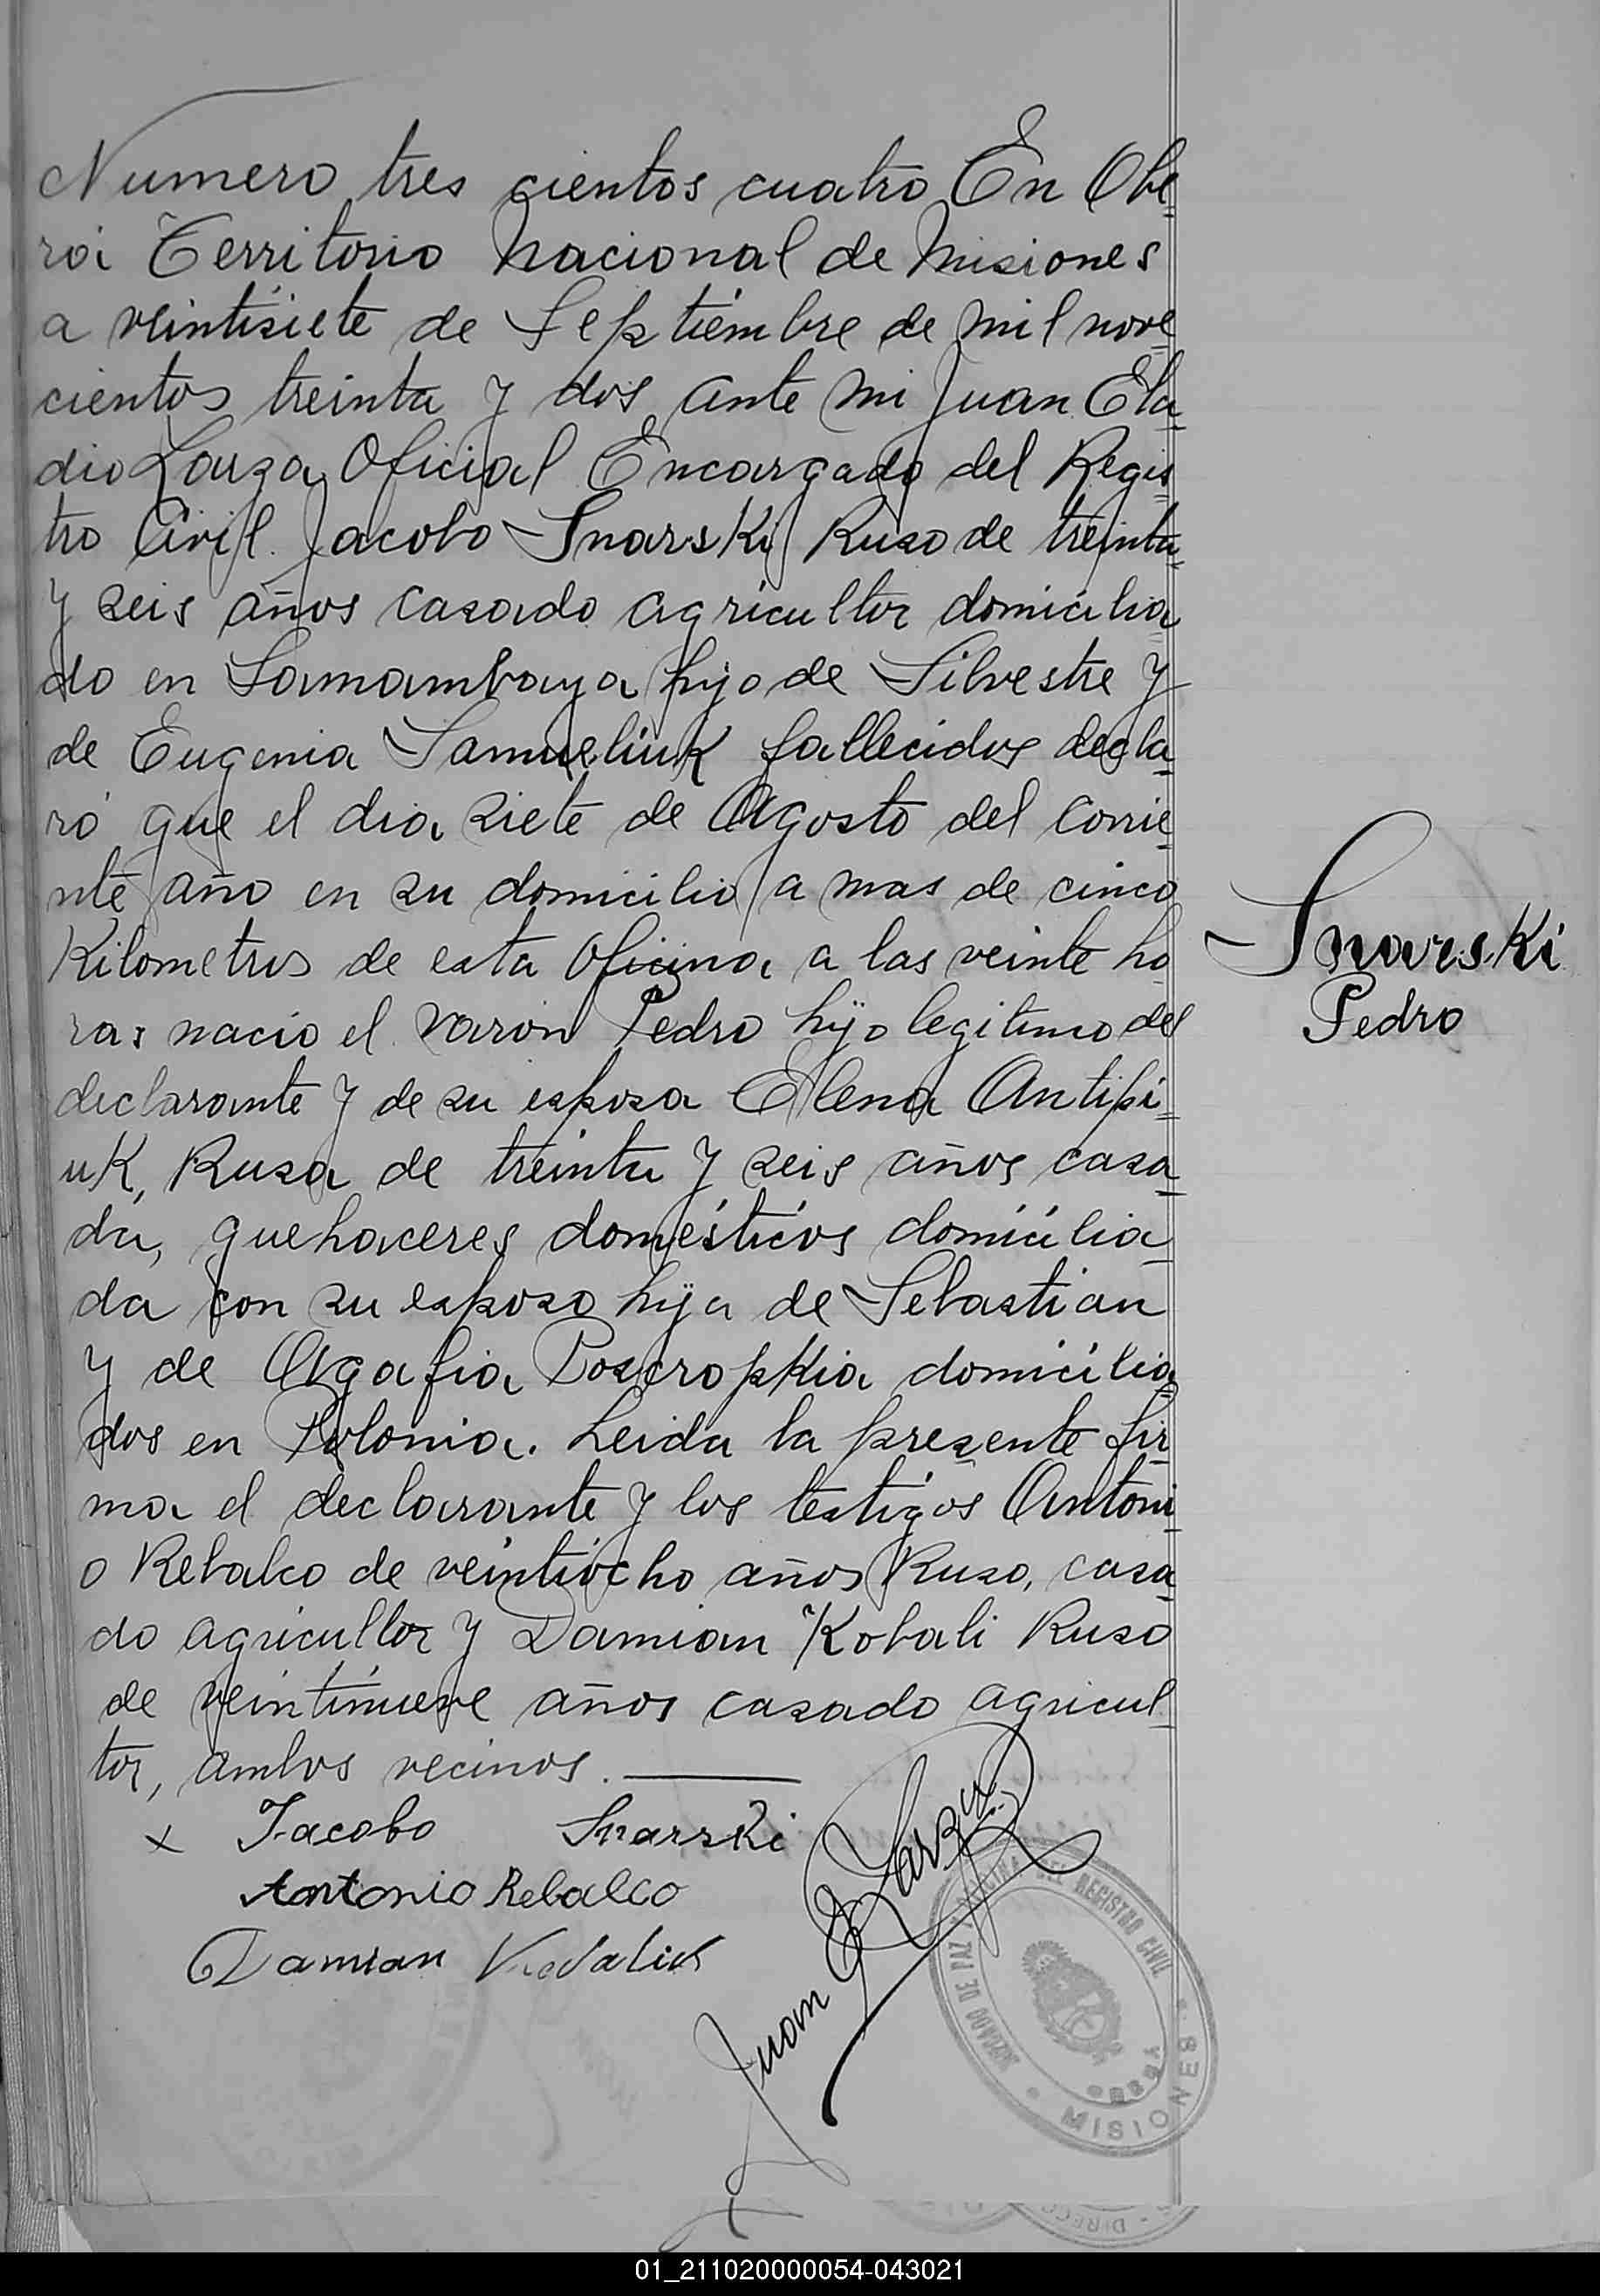 Numero tres cientos cuatro En Obe=
rá Territorio Nacional de Misiones
a veintisiete de Septiembre de mil nove=
cientos treinta y dos ante mi Juan Ela=
dio Zarza Oficial Encargado del Regis=
tro Civil. Jacobo Snarski Ruso de treinta=
y seis años casado agricultor domicilia=
do en Samambaya hijo de Silvestre y
de Eugenia Samueliuk fallecidos decla=
ró que el dia siete de Agosto del corrie=
nte año en su domicilio a mas de cinco
Kilometros de esta oficina a las veinte ho
ras nacio el varon Pedro hijo legitimo del
declarante y de su esposa Elena Antipi=
uk, Rusa de treinta y seis años casa=
da, quehaceres domésticos domicilia=
da con su esposo hija de Sebastian
y de Agafia domicilia=
dos en Polonia. Leida la presente fir=
ma el declarante y los testigos Antoni=
o Rebalco de veintiocho años Ruso, casa=
do agricultor y Damian Kobali Ruso
de veintinueve años casado agricul=
tor, ambos vecinos.
Snarski
Pedro
x Jacobo Snarski
Antonio Rebalco
Damian
Juan E Zarza
OFICINA DEL REGISTRO CIVIL
JUZGADO DE PAZ Y
OBERA
MISIONES
01_211020000054-043021